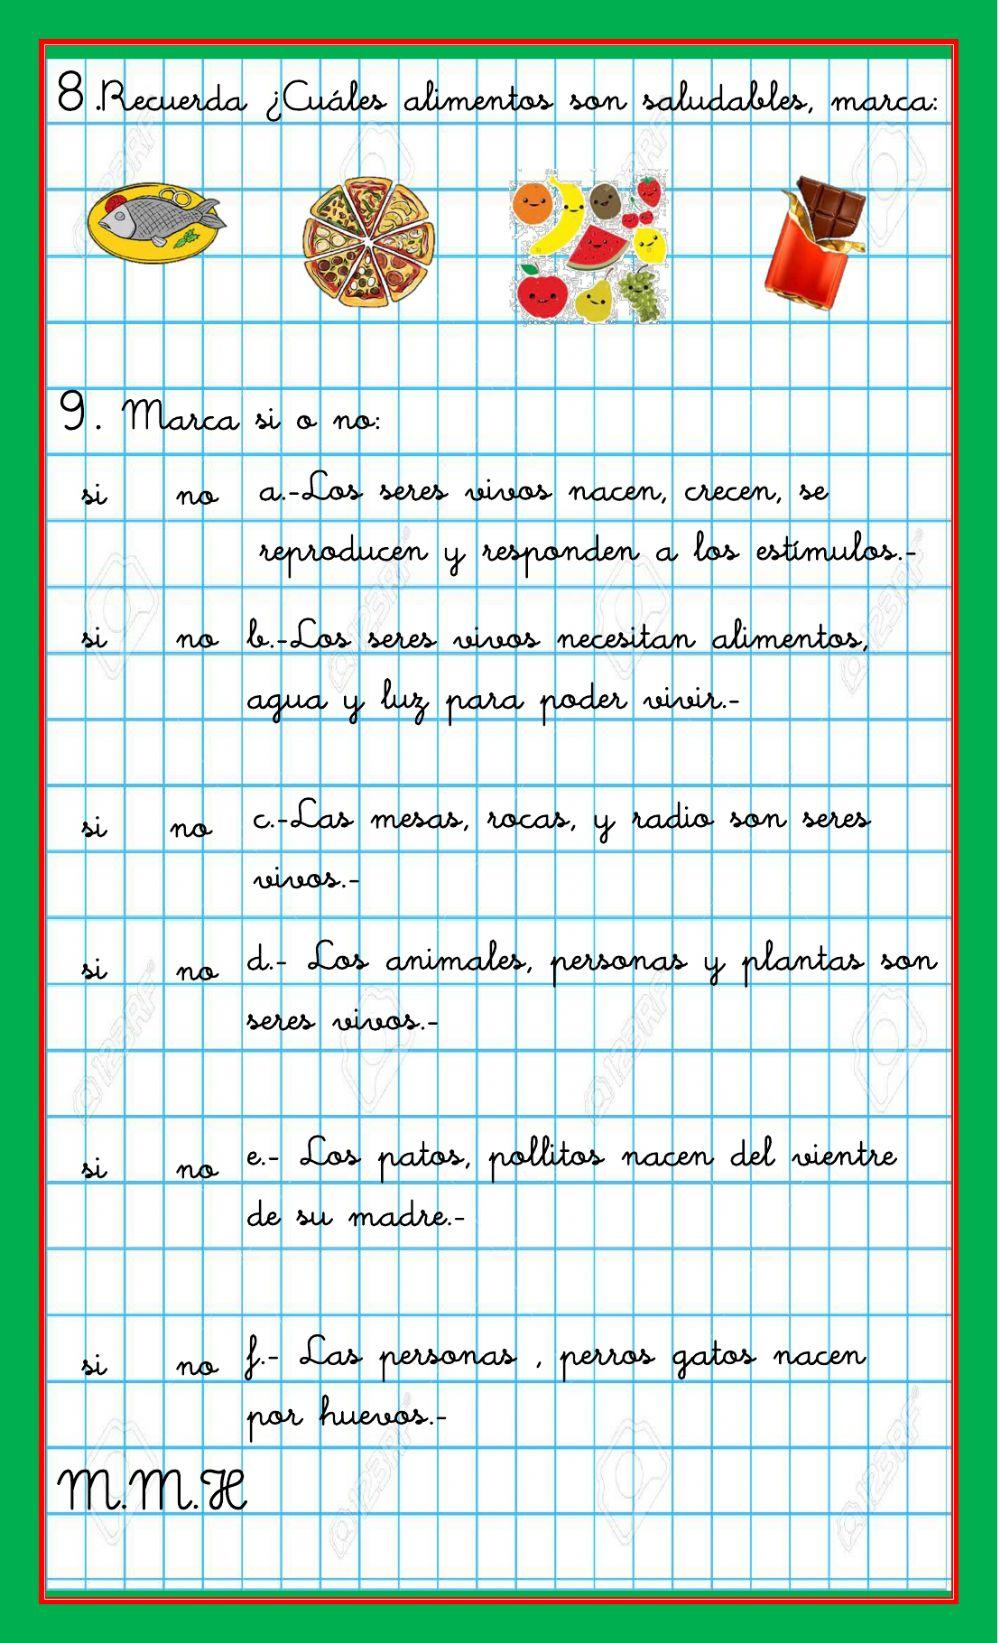 8.Recuerda ¿Cuáles alimentos son saludables, marca:
9. Marca si o no:
si no a.-Los seres vivos nacen, crecen, se
reproducen y responden a los estímulos.-
si no b.-Los seres vivos necesitan alimentos,
agua y luz para poder vivir.-
si no c.-Las mesas, rocas, y radio son seres
vivos.-
si no d.- Los animales, personas y plantas son
seres vivos.-
si no e.- Los patos, pollitos nacen del vientre
de su madre.-
si no f.- Las personas , perros gatos nacen
por huevos.-
M.M.H